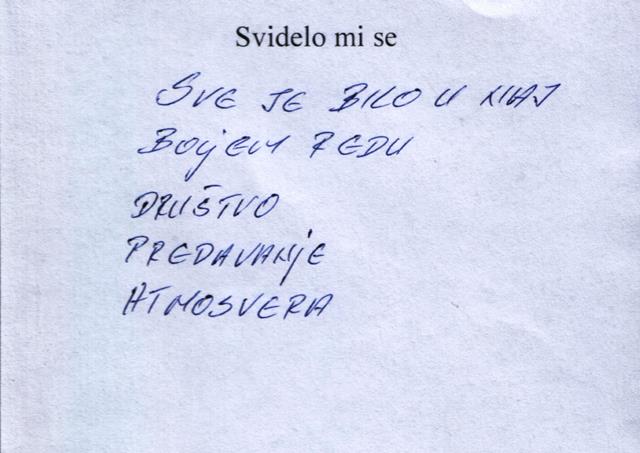 Svidelo mi se
SVE JE BILO U NAJ
BOljEM REDU
DRUŠTVO
PREDAVANjE
ATMOSVERA